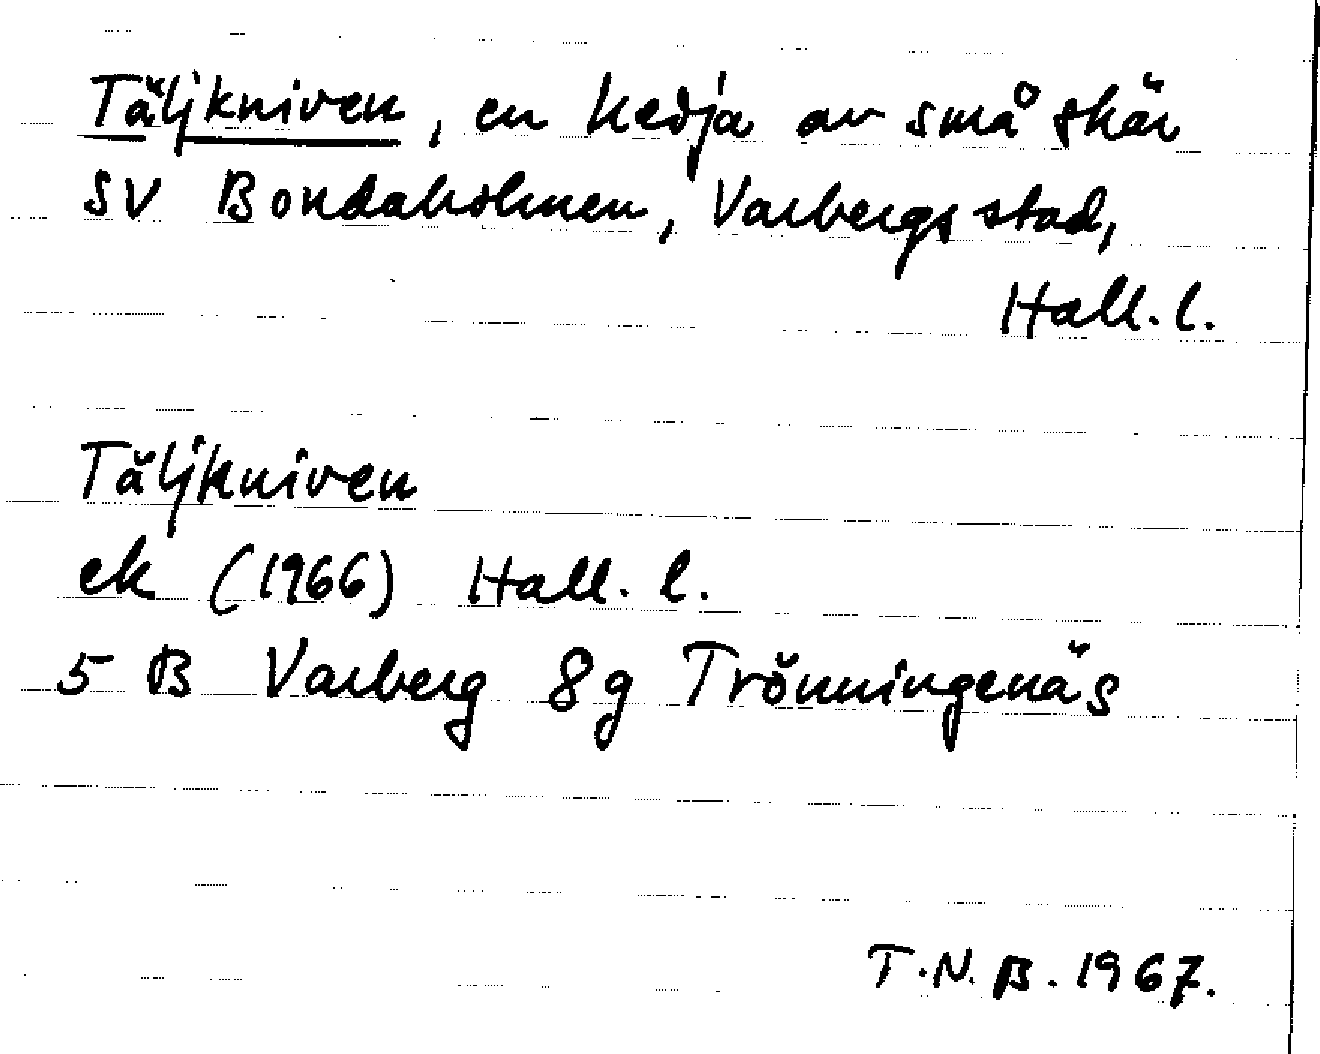 Täljkniven, en kedja av små skär
SV Bondaholmen, Varbergs stad,
Hall. l.
Täljkniven
ek (1966) Hall. l.
5 B Varberg 8g Trönningenäs
T.N.B. 1967.